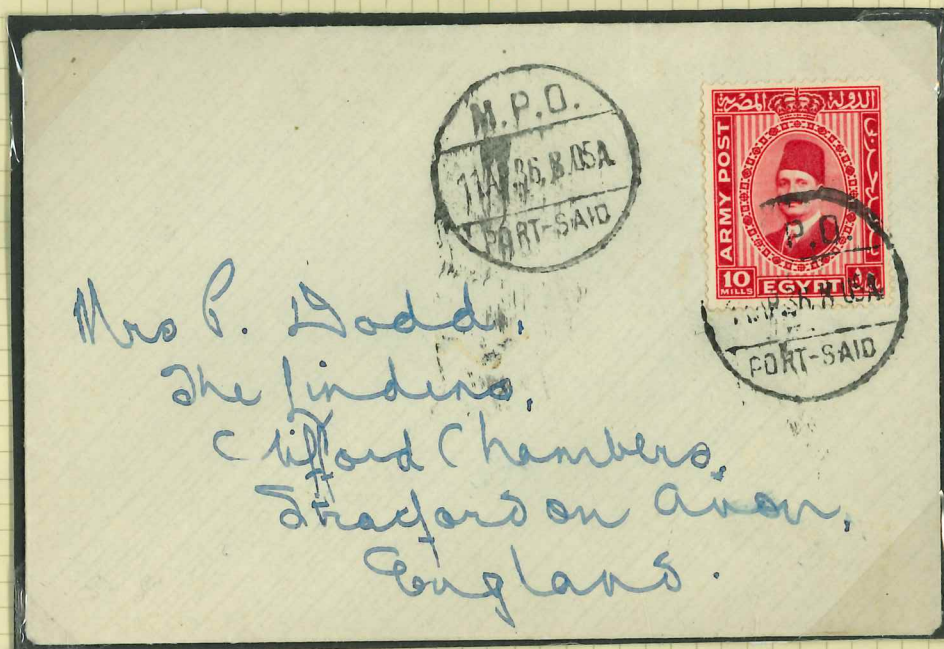 M.P.O.
11AP.36.8.05A
PORT-SAID
الدولة المصرية
ARMY POST
10
MILLS
EGYPT
P.O.
36.8.05A
PORT-SAID
Mrs P. Dodd,
The Lindens,
Clifford Chambers,
Stratford on Avon,
England.